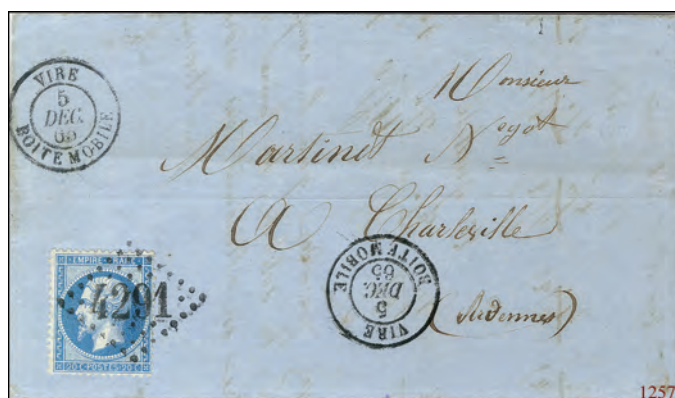 VIRE
5
DEC.
65
BOITE MOBILE
Monsieur
Martinet Negot
A Charleville
(Ardennes)
VIRE
5
DEC.
65
BOITE MOBILE
EMPIRE FRANC
4291
20 C POSTES 20 C
1257